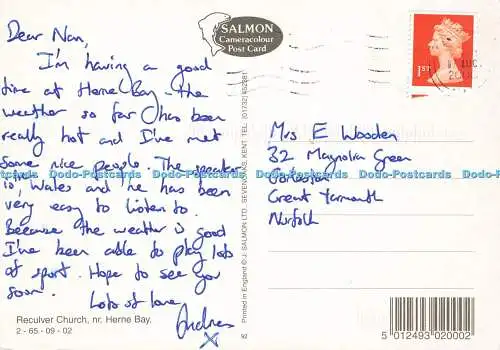 Dear Nan,
I'm having a good
time at Herne Bay - the
weather so far has been
really hot and I've met
some nice people. The speaker
is, Wales and he has been
very easy to listen to.
Because the weather is good
I've been able to play lots
of sport. Hope to see you
soon.
Lots of love
Andrew
X
Reculver Church, nr. Herne Bay.
2 - 65 - 09 - 02
SALMON
Cameracolour
Post Card
Printed in England © J. SALMON LTD., SEVENOAKS, KENT. TEL. (01732) 452381
92
1ST
Mrs E Wooden
32 Magnolia Green
Gorleston
Great Yarmouth
Norfolk
5 012493 020002
Dodo-Postcards Dodo-Postcards Dodo-Postcards Dodo-Postcards